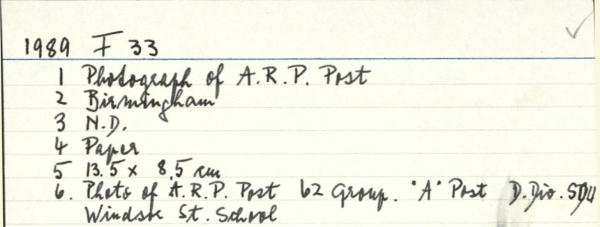 1989 F 33
1 Photograph of A.R.P. Post
2 Birmingham
3 N.D.
4 Paper
5 13.5 x 8.5 cm
6. Photo of A.R.P. Post 62 Group. "A" Post D. Div.
Windsor St. School